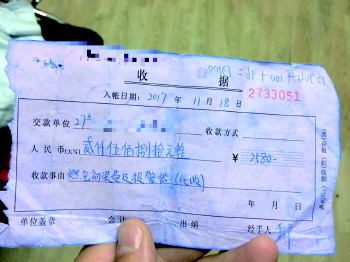 收据
2733051
入帐日期:2017年11月18日
交款单位 收款方式
人民币(大写)贰仟伍佰捌拾元整 ¥2580-
收款事由 燃气初装费及报警器(代收)
年 月 日
单位盖章 会计 出纳 经手人